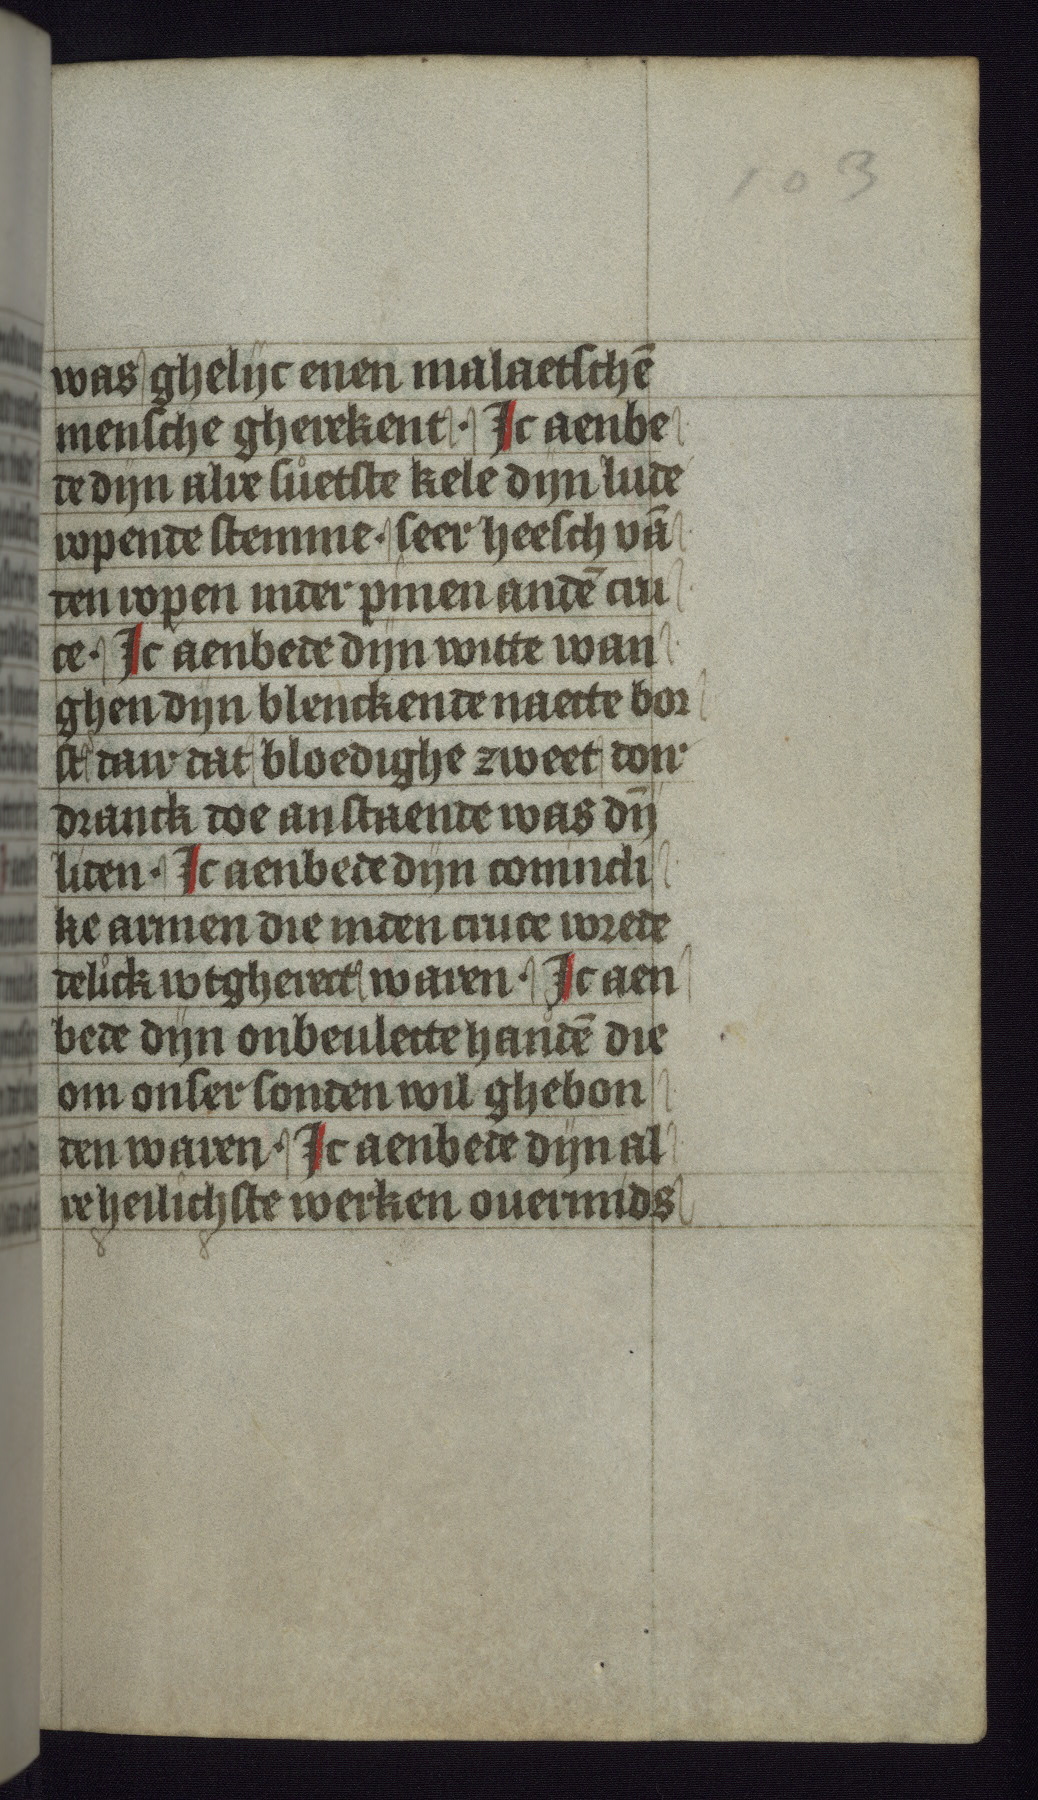 103
was ghelijc enen malaetschē
mensche gherekent · Ic aenbe
de dijn alre suetste kele dijn lude
ropende stemme · seer heesch vā
den ropen inder pinen andē cru
ce · Ic aenbede dijn witte wan
ghen dijn blenckende naecte bor
st daer dat bloedighe zweet doir
dranck doe an staende was dijn
liden · Ic aenbede dijn conincli
ke armen die inden cruce wrede
delick wtgherect waren · Ic aen
bede dijn onbeulecte handē die
om onser sonden wil ghebon
den waren · Ic aenbede dijn al
re heilichste werken ouermids